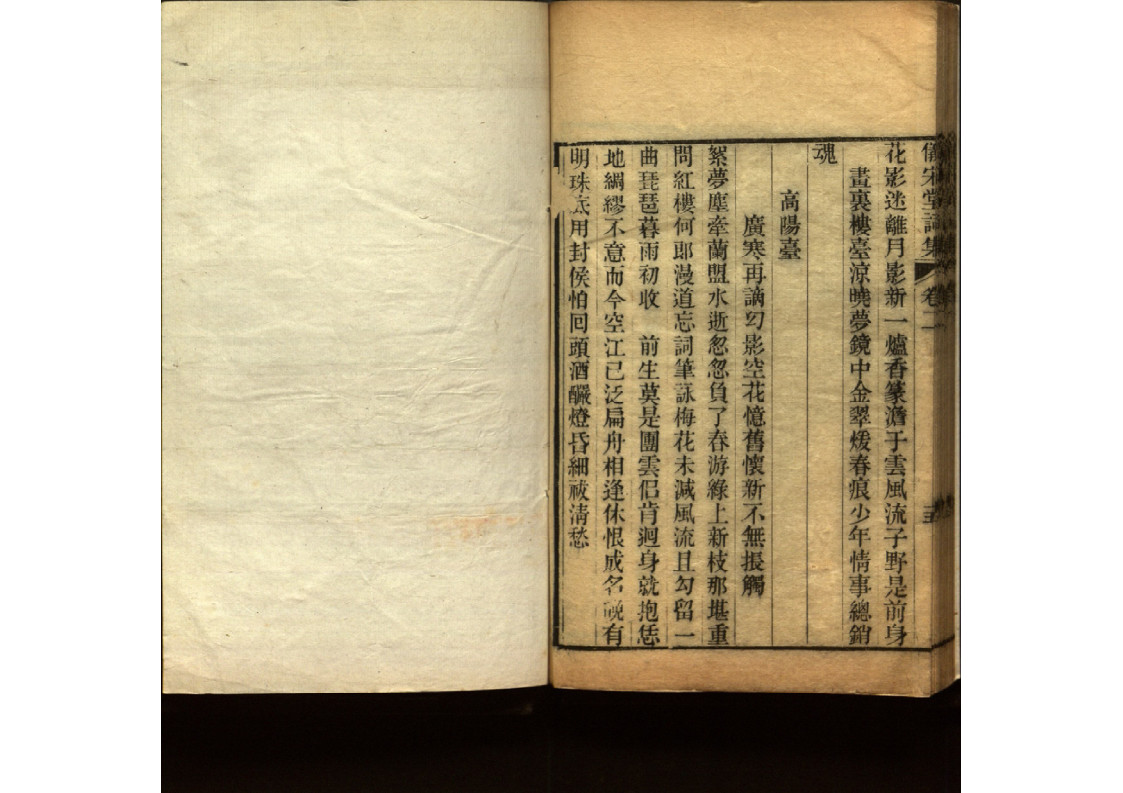 儀宋堂詞集 卷二
花影迷離月影新一爐香篆澹于雲風流子野是前身
畫裏樓臺涼曉夢鏡中金翠煖春痕少年情事總銷
魂
高陽臺
廣寒再謫幻影空花憶舊懷新不無振觸
絮夢塵牽蘭盟水逝忽忽負了春游綠上新枝那堪重
問紅樓何郎漫道忘詞筆詠梅花未減風流且勾留一
曲琵琶暮雨初收 前生莫是團雲侶肯迴身就抱恁
地綢繆不意而今空江已泛扁舟相逢休恨成名晚有
明珠底用封侯怕回頭酒釅燈昏細祓清愁